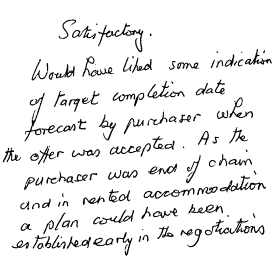 Satisfactory.
Would have liked some indication
of target completion date
forecast by purchaser when
the offer was accepted. As the
purchaser was end of chain
and in rented accommodation
a plan could have been
established early in the negotiations